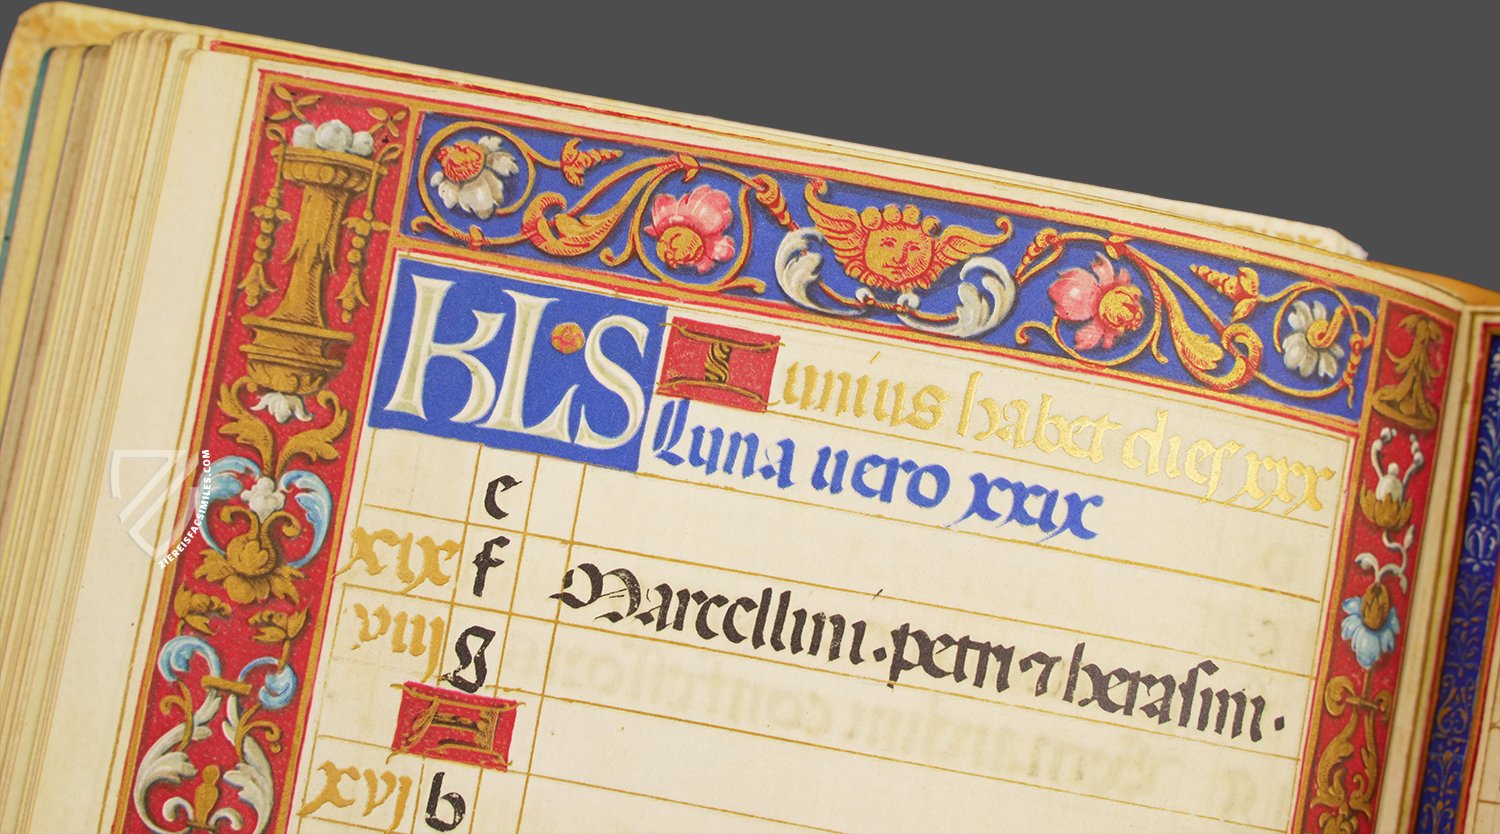 KL·S Iunius habet dies xxx
Luna uero xxix
e
xix f Marcellini · petri ⁊ herasmi ·
viij g
A
xvj b
ZIEREISFACSIMILES.COM